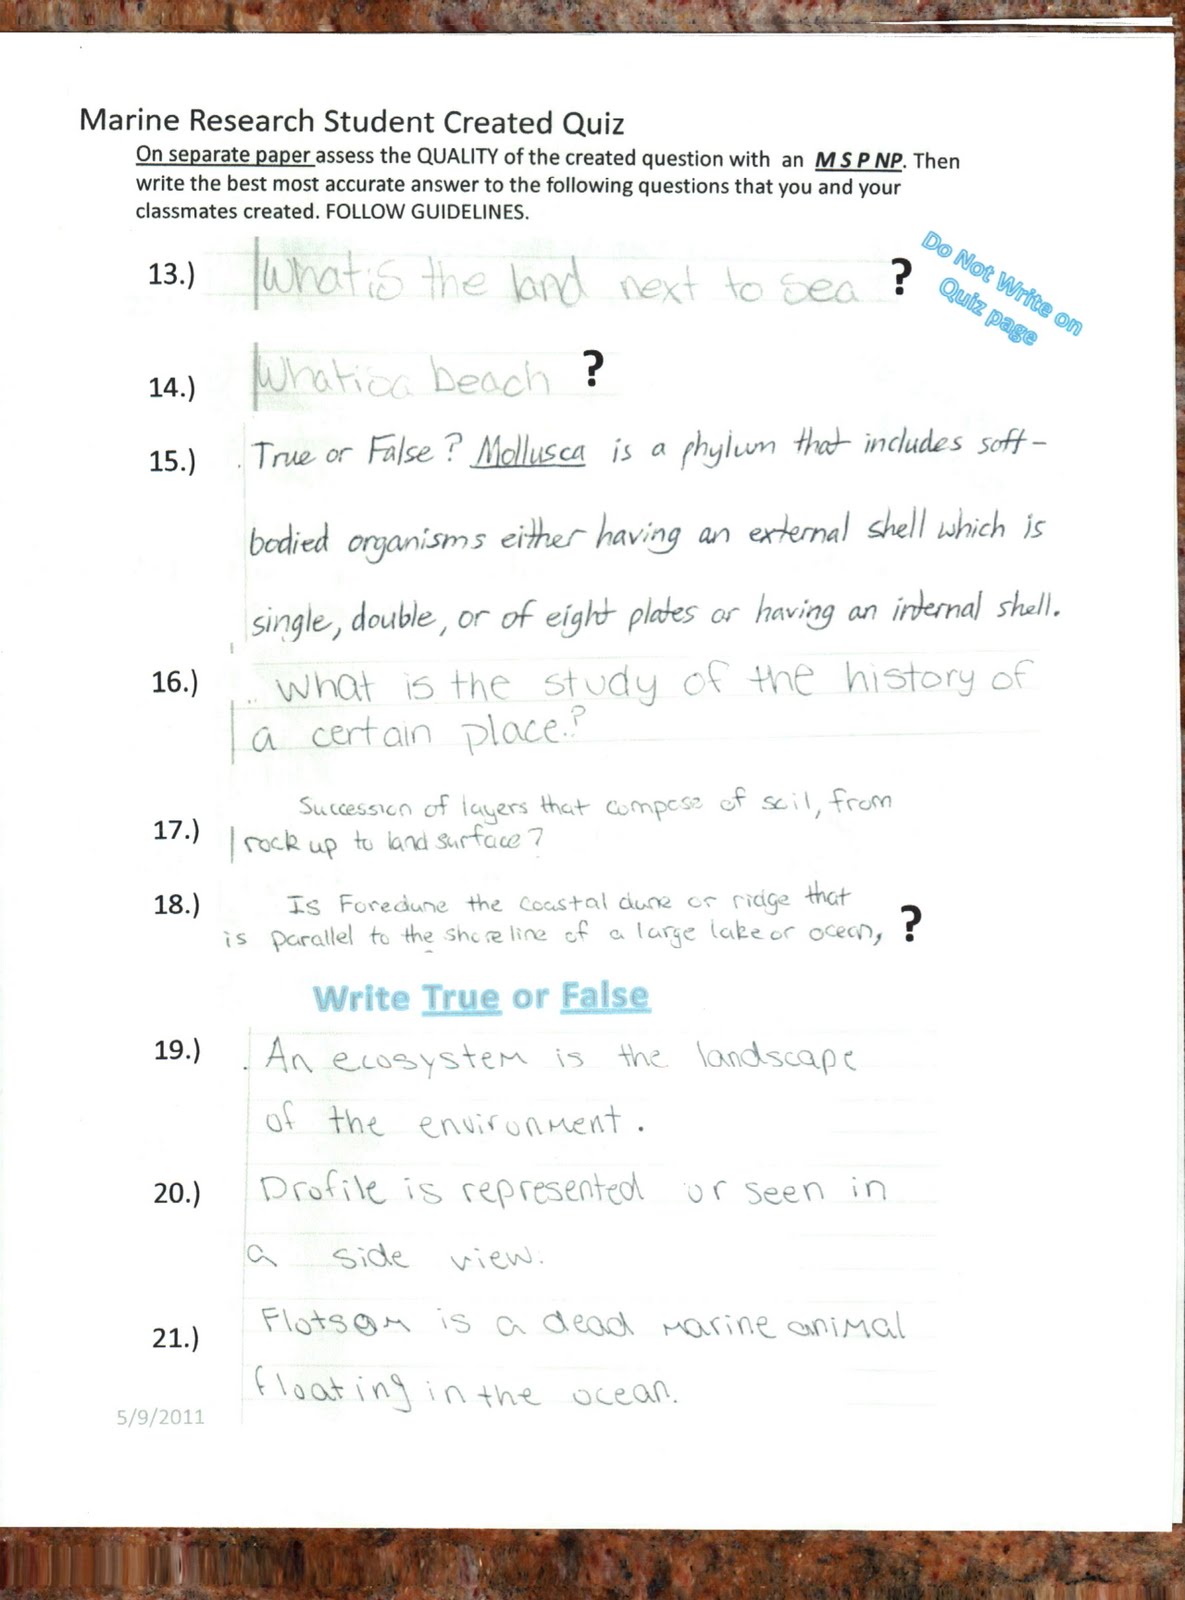 Marine Research Student Created Quiz
On separate paper assess the QUALITY of the created question with an M S P NP. Then
write the best most accurate answer to the following questions that you and your
classmates created. FOLLOW GUIDELINES.
Do Not Write on
Quiz page
13.) What is the land next to sea ?
14.) What is a beach ?
15.) True or False? Mollusca is a phylum that includes soft-
bodied organisms either having an external shell which is
single, double, or of eight plates or having an internal shell.
16.) What is the study of the history of
a certain place?
Succession of layers that compose of soil, from
17.) rock up to land surface?
18.) Is Foredune the coastal dune or ridge that
is parallel to the shoreline of a large lake or ocean, ?
Write True or False
19.) An ecosystem is the landscape
of the environment.
20.) Profile is represented or seen in
a side view.
21.) Flotsam is a dead marine animal
floating in the ocean.
5/9/2011